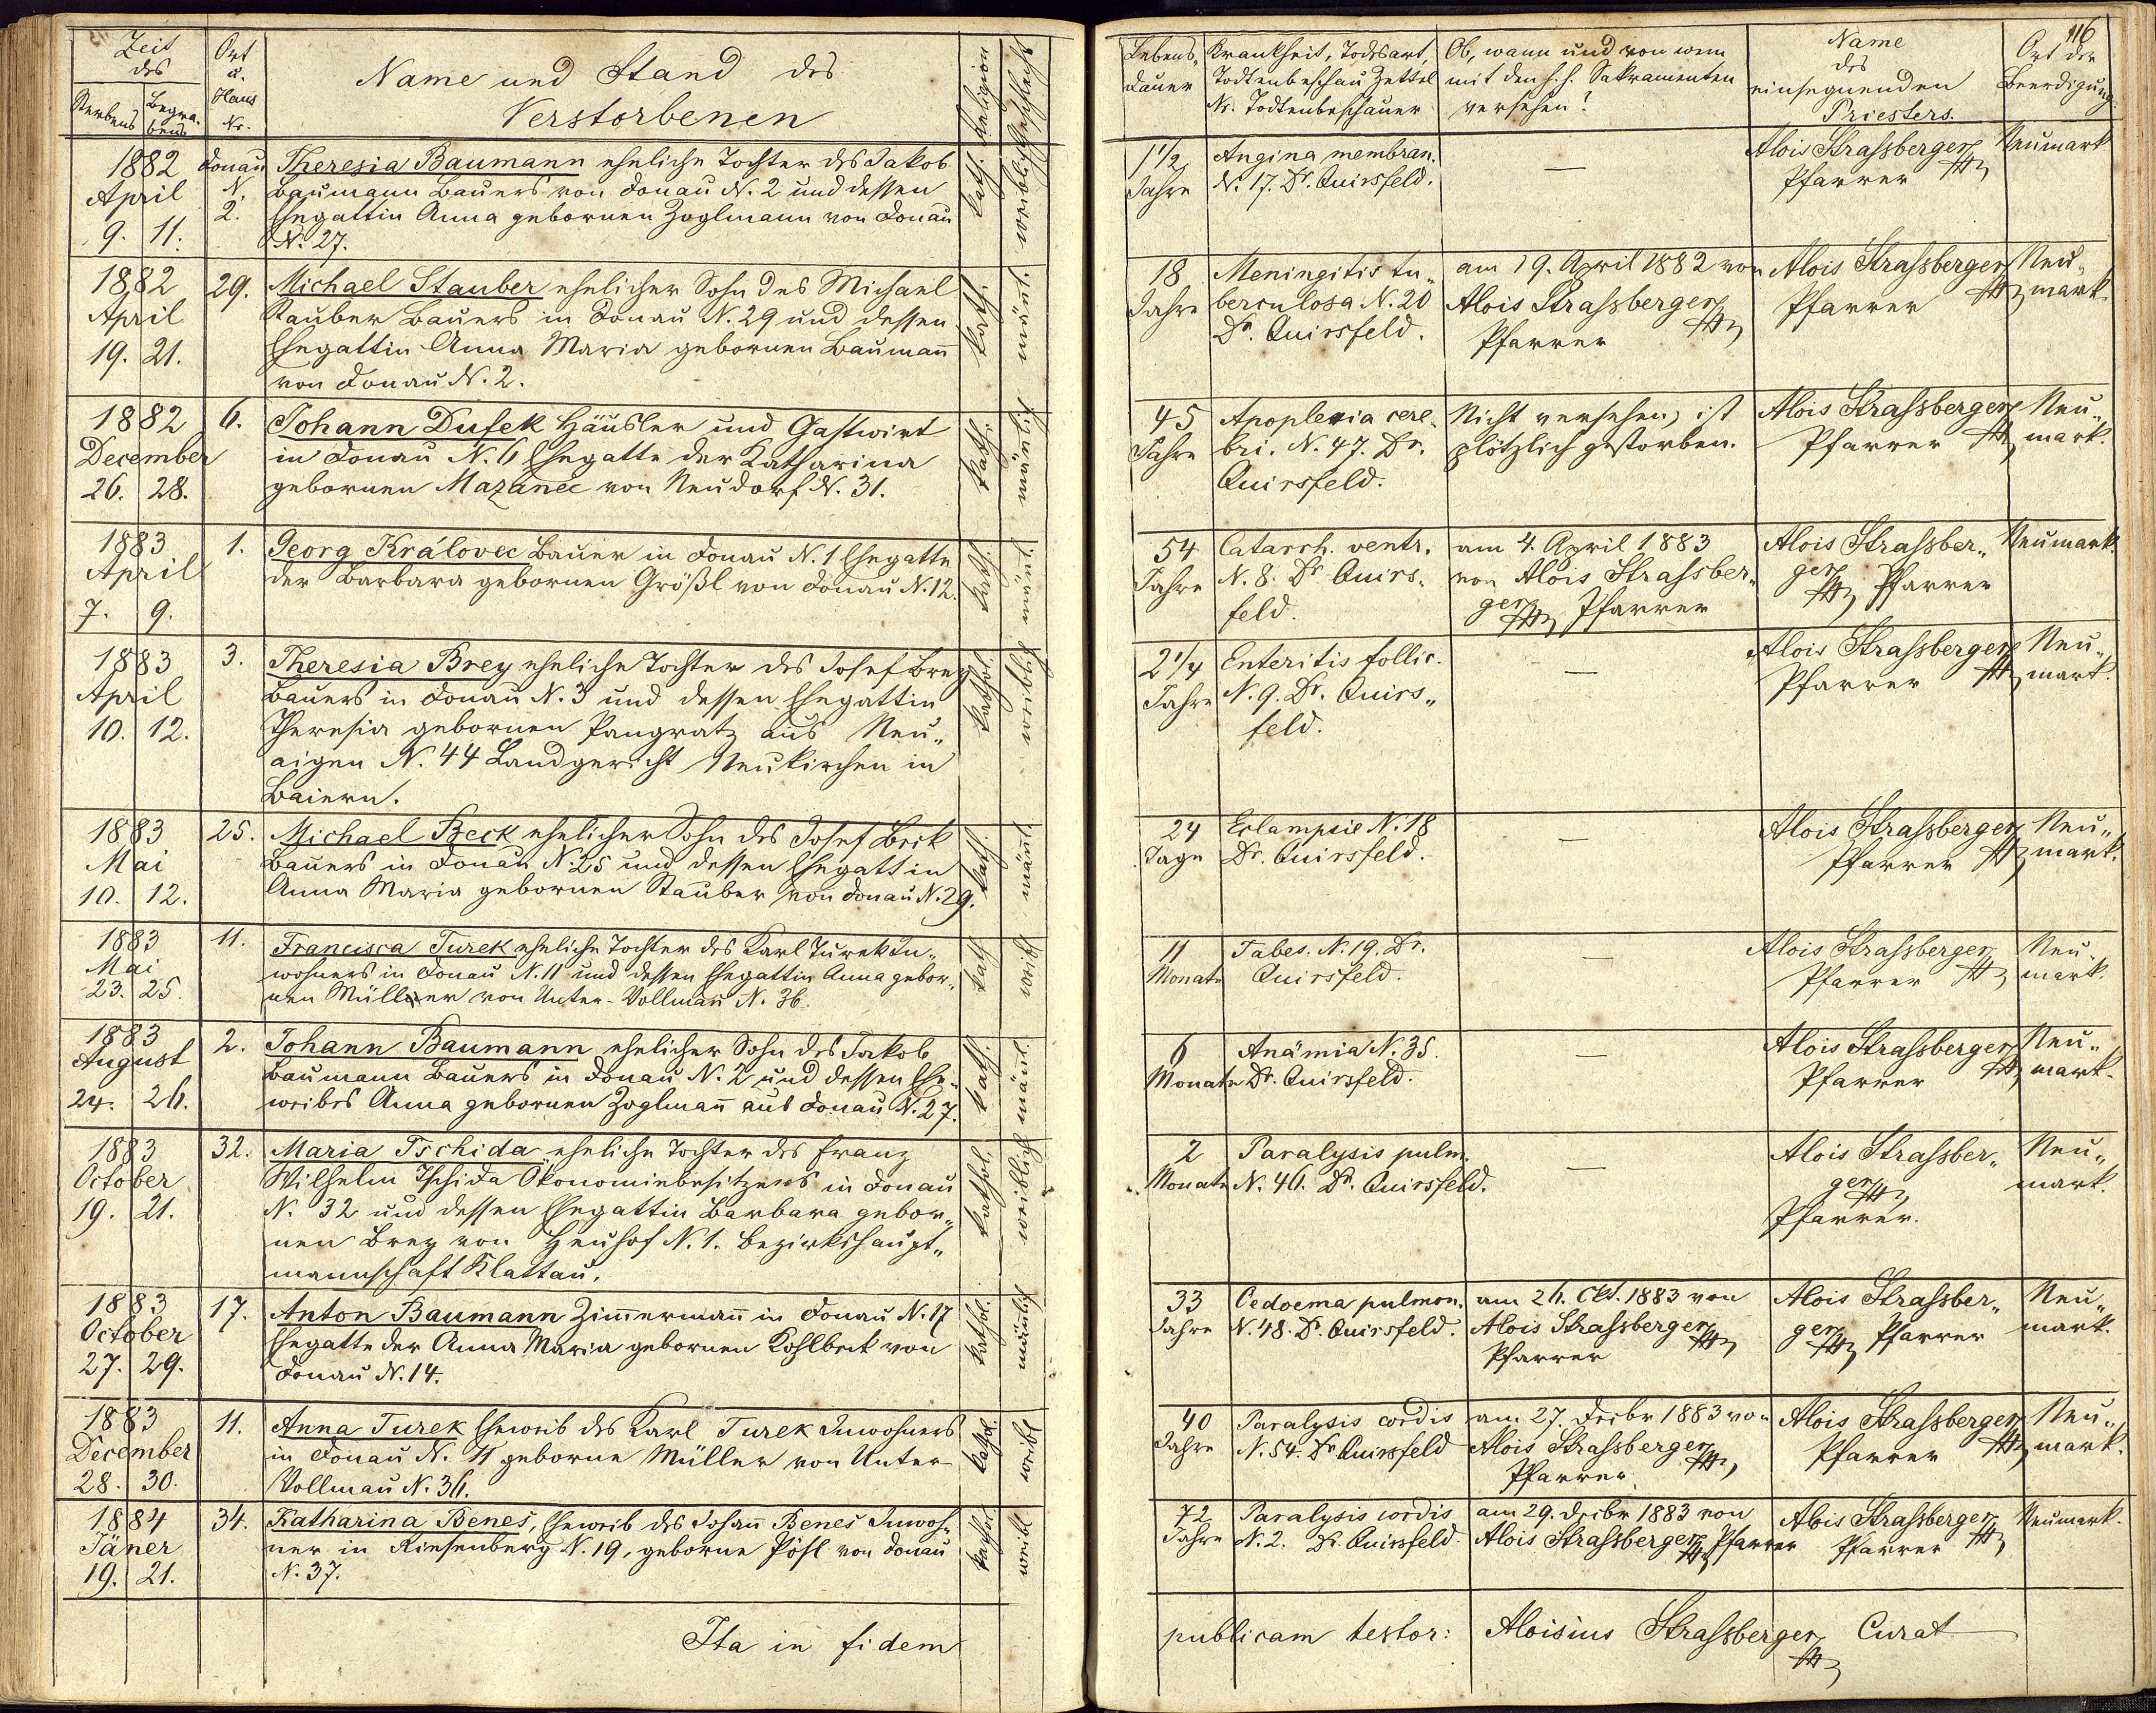 Zeit
des
Sterbens
Begra-
bens
Ort
u.
Haus
Nr.
Name und Stand des
Verstorbenen
Religion
Geschlecht
1882
April
9. 11.
Donau
N.
2.
Theresia Baumann eheliche Tochter des Jakob
Baumann Bauers von Donau N. 2 und dessen
Ehegattin Anna gebornen Zoglmann von Donau
N. 27.
kath.
weiblich
1882
April
19. 21.
29.
Michael Stauber ehelicher Sohn des Michael
Stauber Bauers in Donau N. 29 und dessen
Ehegattin Anna Maria gebornen Baumañ
von Donau N. 2.
kath.
mäñl.
1882
December
26. 28.
6.
Johann Dufek Häusler und Gastwirt
in Donau N. 6 Ehegatte der Katharina
gebornen Mazanec von Neudorf N. 31.
kath.
mäñlich
1883
April
7. 9.
1.
Georg Královec Bauer in Donau N. 1 Ehegatte
der Barbara gebornen Größl von Donau N. 12.
kath.
mäñl.
1883
April
10. 12.
3.
Theresia Brey eheliche Tochter des Josef Brey
Bauers in Donau N. 3 und dessen Ehegattin
Theresia gebornen Pangratz aus Neu„
aigen N. 44 Landgericht Neukirchen in
Baiern.
kathol.
weiblich
1883
Mai
10. 12.
25.
Michael Beck ehelicher Sohn des Josef Beck
Bauers in Donau N. 25 und dessen Ehegattin
Anna Maria gebornen Stauber von Donau N. 29.
kath.
mäñl
1883
Mai
23. 25.
11.
Francisca Turek eheliche Tochter des Karl Turek In„
wohners in Donau N. 11 und dessen Ehegattin Anna gebor„
nen Müller von Unter-Vollmañ N. 36.
kath
weibl
1883
August
24. 26.
2.
Johann Baumann ehelicher Sohn des Jakob
Baumann Bauers in Donau N. 2 und dessen Ehe„
weibes Anna gebornen Zoglmañ aus Donau N. 27.
kath.
mäñl.
1883
October
19. 21.
32.
Maria Tschida eheliche Tochter des Franz
Wilhelm Tschida Ökonomiebesitzers in Donau
N. 32 und dessen Ehegattin Barbara gebor„
nen Brey von Heuhof N. 1. Bezirkshaupt„
mannschaft Klattau.
kathol.
weiblich
1883
October
27. 29.
17.
Anton Baumann Zim̃ermañ in Donau N. 17
Ehegatte der Anna Maria gebornen Kohlbeck von
Donau N. 14.
kathol.
mäñlich
1883
December
28. 30.
11.
Anna Turek Eheweib des Karl Turek Inwohners
in Donau N. 11 geborne Müller von Unter-
Vollmau N. 36.
kathol.
weibl
1884
Jäner
19. 21.
34.
Katharina Beneš, Eheweib des Johañ Beneš Inwoh„
ner in Riesenberg N. 19, geborne Pösl von Donau
N. 37.
kathol
weibl
Ita in fidem
116
Lebens„
dauer
Krankheit, Todesart,
Todtenbeschau Zettel
Nr. Todtenbeschauer
Ob, wann und von wem
mit den h. h. Sakramenten
versehen?
Name
des
einsegnenden
Priesters.
Ort der
Beerdigung.
1 1/2
Jahre
Angina membran.
N. 17. Dr. Quirsfeld.
—
Alois Strassberger
Pfarrer
Neumark
18
Jahre
Meningitis tu„
berculosa N. 20
Dr. Quirsfeld.
am 19. April 1882 von
Alois Strassberger
Pfarrer
Alois Strassberger
Pfarrer
Neu„
mark.
45
Jahre
Apoplexia cere„
bri. N. 47. Dr.
Quirsfeld.
Nicht versehen, ist
plötzlich gestorben.
Alois Strassberger
Pfarrer
Neu„
mark.
54
Jahre
Catarrh. ventr.
N. 8. Dr Quirs„
feld.
am 4. April 1883
von Alois Strassber„
ger Pfarrer
Alois Strassber„
ger Pfarrer
Neumark.
2 1/4
Jahre
Enteritis follic.
N. 9. Dr. Quirs„
feld.
—
Alois Strassberger
Pfarrer
Neu„
mark.
24
Tage
Eclampsie N. 18
Dr. Quirsfeld.
—
Alois Strassberger
Pfarrer
Neu„
mark.
11
Monate
Tabes. N. 19. Dr.
Quirsfeld.
—
Alois Strassberger
Pfarrer
Neu„
mark.
6
Monate
Anämia N. 35.
Dr. Quirsfeld.
—
Alois Strassberger
Pfarrer
Neu„
mark.
2
Monate
Paralysis pulm.
N. 46. Dr. Quirsfeld.
—
Alois Strassber„
ger
Pfarrer.
Neu„
mark.
33
Jahre
Oedoema pulmon.
N. 48. Dr. Quirsfeld.
am 26. Okt. 1883 von
Alois Strassberger
Pfarrer
Alois Strassber„
ger Pfarrer
Neu„
mark.
40
Jahre
Paralysis cordis
N. 54. Dr Quirsfeld
am 27. Dezbr 1883 von
Alois Strassberger
Pfarrer
Alois Strassberger
Pfarrer
Neu„
mark.
72
Jahre
Paralysis cordis
N. 2. Dr. Quirsfeld.
am 29. Dezbr 1883 von
Alois Strassberger Pfarrer
Alois Strassberger
Pfarrer
Neumark.
publicam testor: Aloisius Strassberger Curat